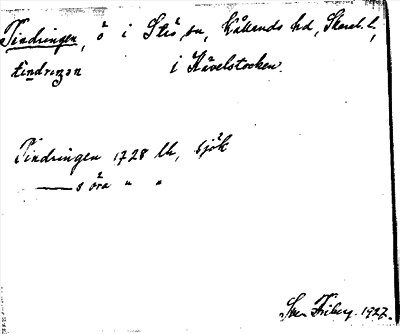 Tindringen, ö i Flo sn, Kållands hd, Skarab. l.,
tindriŋən i Hävelstocken.
Tindringen 1728 lh, sjök
——s öra " "
Sven Friberg. 1927.